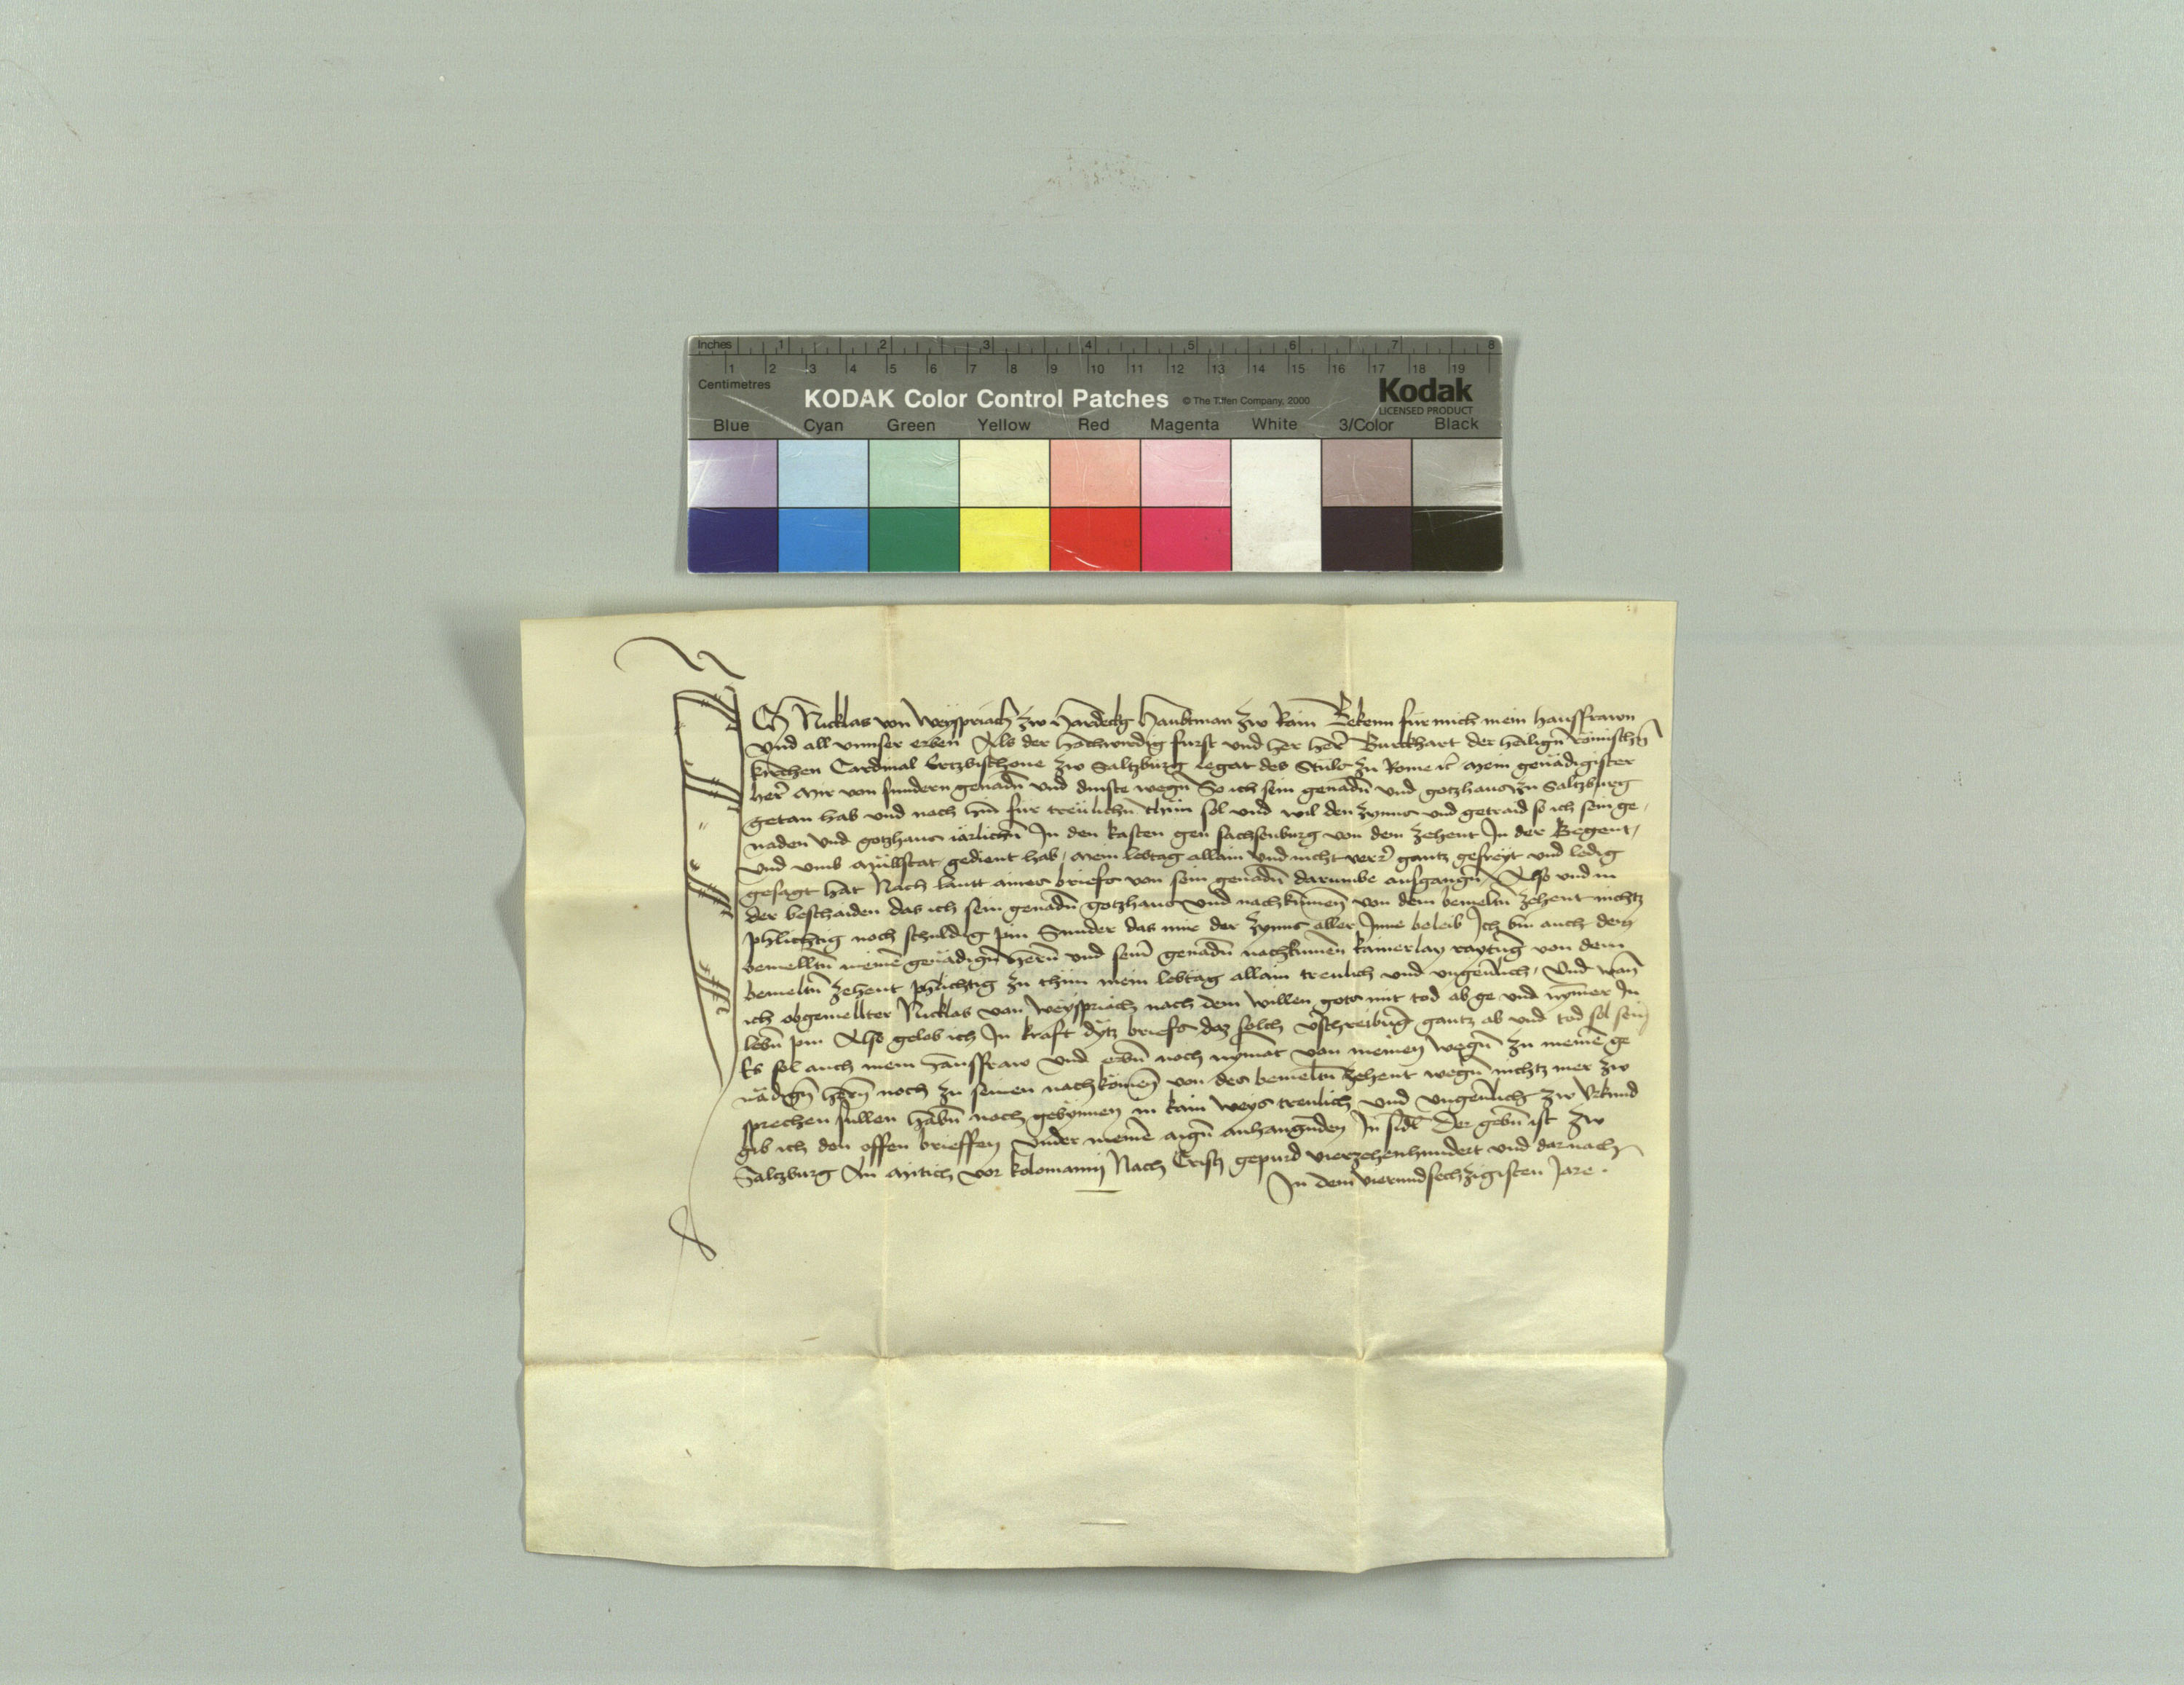 Inches 1 2 3 4 5 6 7 8
1 2 3 4 5 6 7 8 9 10 11 12 13 14 15 16 17 18 19
Centimetres
KODAK Color Control Patches © The Tiffen Company, 2000 Kodak
LICENSED PRODUCT
Blue Cyan Green Yellow Red Magenta White 3/Color Black
ICh Nicklas von Weyspriach zw Hardekg Haubtman zw Kain Bekenn für mich mein hausfrawn
vnd all vnnser erben Als der hochwirdig furst vnd her herr Burckhart der heiligñ römischñ
kirchen Cardinal Ertzbischoue zw Saltzburg legat des Stuls zu Rome ꝛc mein genädigister
herr mir von sundern genadñ vnd dinste wegñ So ich sein genadñ vnd gotzhaus zu Saltzburg
getan hab vnd noch hin für treülichñ thün sol vnd wil den zynns vnd getraid so ich sein ge
naden vnd gotzhaus iärlichñ In den kasten gen sachsenburg von dem zehent In der Gegent
vnd vmb Müllstat gedient hab / mein lebtag allain vnd nicht verr gantz gefreyt vnd ledig
gesagt hat Nach lautt aines briefs von sein genadñ darumbe ausgangñ / Also vnd in
der beschaiden das ich sein genadñ gotzhaus vnd nachkumen von dem bemeltñ zehent nichtz
phlichtig noch schuldig pin Sunder das mir der zynns aller Inne beleib Ich bin auch dem
bemelltñ meinē genädigñ herrñ vnd seinē genadñ nachkumen kainerlay raytūg von dem
bemeltñ zehent phlichtig zu thün mein lebtag allain treulich vnd vngeuärlich / Vnd wañ
ich obgemellter Nicklas von Weyspriach nach dem willen gots mit tod ab ge vnd nymer In
lebñ pin Also gelob ich In kraft dytz briefs daz solch v̄schreibūg gantz ab vnd tod sol sein
Es sol auch mein hausfraw vnd erbñ noch nymat von meinen wegñ zu meinē ge
nädigñ herrñ noch zu seinen nachkomen von des bemeltñ zehent wegñ nichtz mer zw
sprechen sullen habñ noch gebynnen in kain weys treulich vnd vngeuärlich zw Vrkund
gib ich den offen brieffen vnder meinē aigñ anhangūden In sidl Der gebñ ist zw
Saltzburg An Mitich vor kolomanni Nach Cristj gepurd vierzehenhundert vnd darnach
In dem vierundsechzigisten Jare .